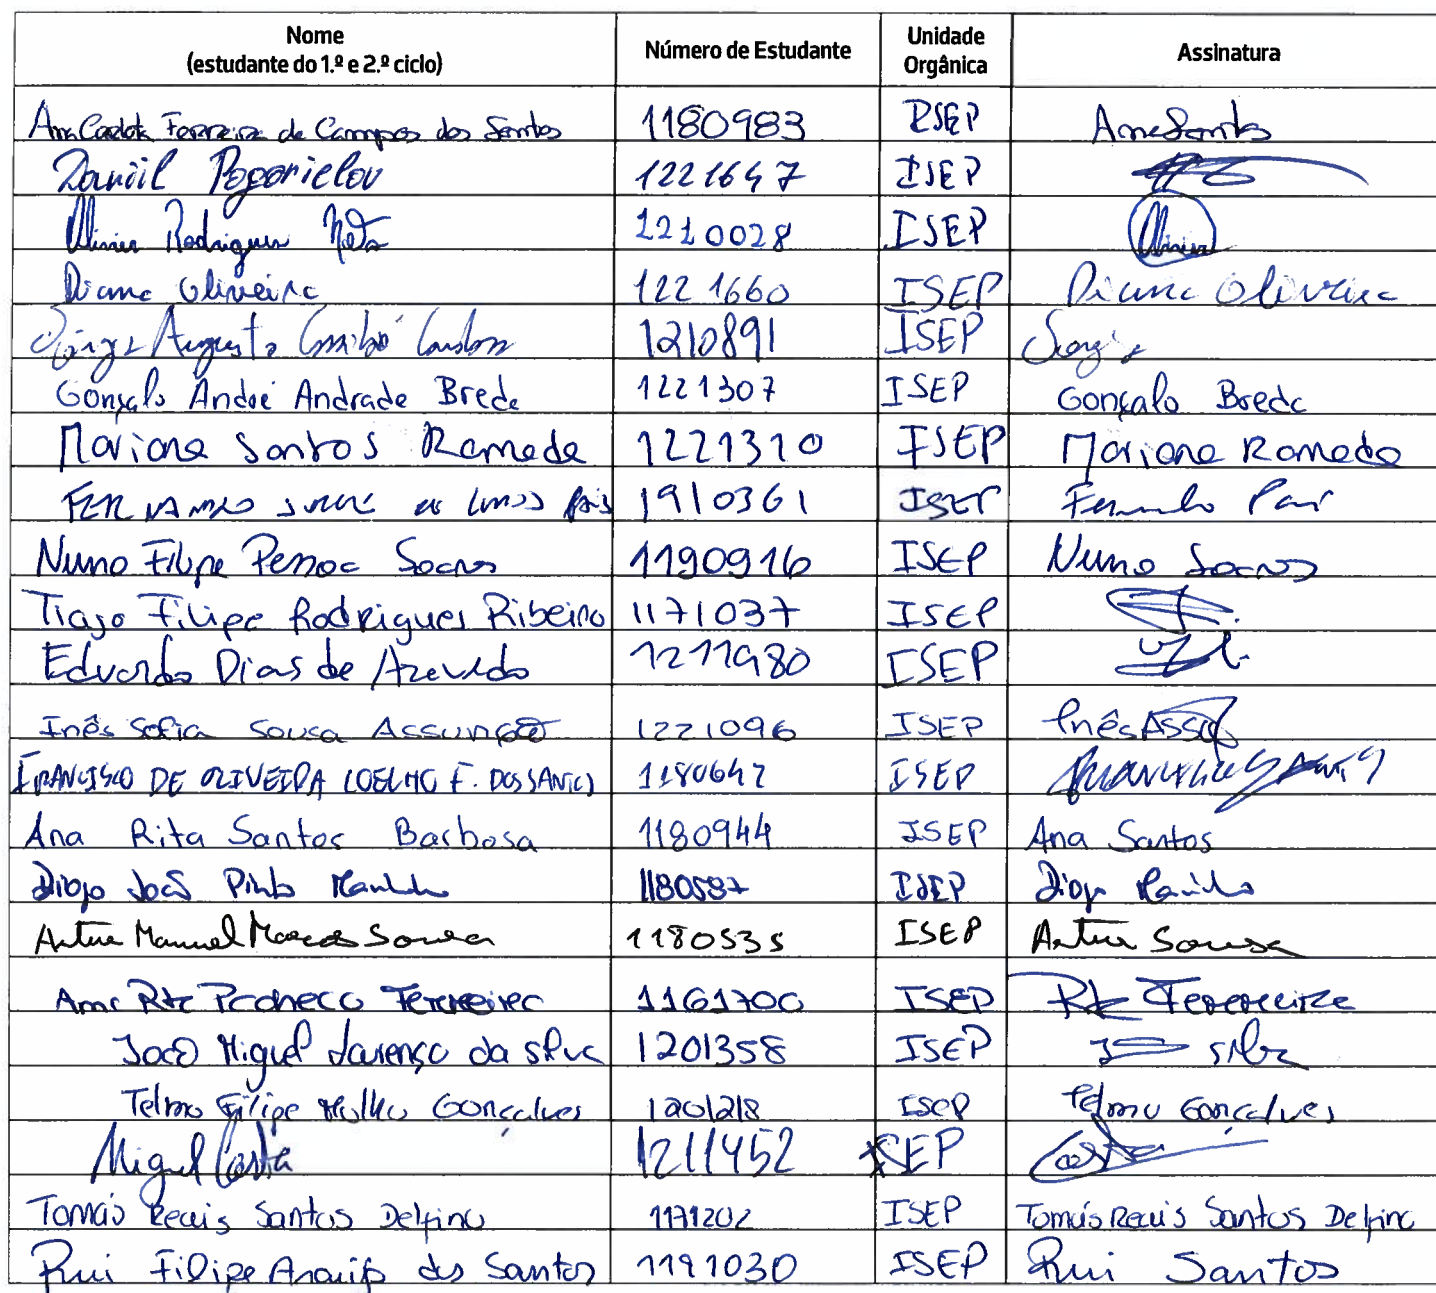 Nome Número de Estudante Unidade Assinatura
(estudante do 1.º e 2.º ciclo) Orgânica
Ana Carlota Ferreira de Campos dos Santos 1180983 ISEP Ana Santos
Daniil Pogorielov 1221647 ISEP
Rodrigues 1210028 ISEP
Diana Oliveira 1221660 ISEP Diana Oliveira
Augusto 1210891 ISEP
Gonçalo André Andrade Breda 1221307 ISEP Gonçalo Breda
Mariana Santos Ramada 1221310 ISEP Mariana Ramada
FERNANDO 1910361 ISEP Fernando
Nuno Filipe Pessoa Soares 1190916 ISEP Nuno Soares
Tiago Filipe Rodrigues Ribeiro 1171037 ISEP
Eduardo Dias de Azevedo 1211980 ISEP
Inês Sofia Sousa Assunção 1221096 ISEP Inês
FRANCISCO DE OLIVEIRA COELHO F. DOS SANTOS 1180642 ISEP
Ana Rita Santos Barbosa 1180944 ISEP Ana Santos
Diogo João Pinto 1180587 ISEP Diogo
Artur Manuel Sousa 1180535 ISEP Artur Sousa
Ana Rita Pacheco Ferreira 1161700 ISEP Rita Ferreira
João Miguel Lourenço da Silva 1201358 ISEP Silva
Telmo Filipe Gonçalves 1201218 ISEP Telmo Gonçalves
Miguel Costa 1211452 ISEP Costa
Tomás Recuis Santos Delfino 1171202 ISEP Tomás Recuis Santos Delfino
Rui Filipe Araújo dos Santos 1191030 ISEP Rui Santos